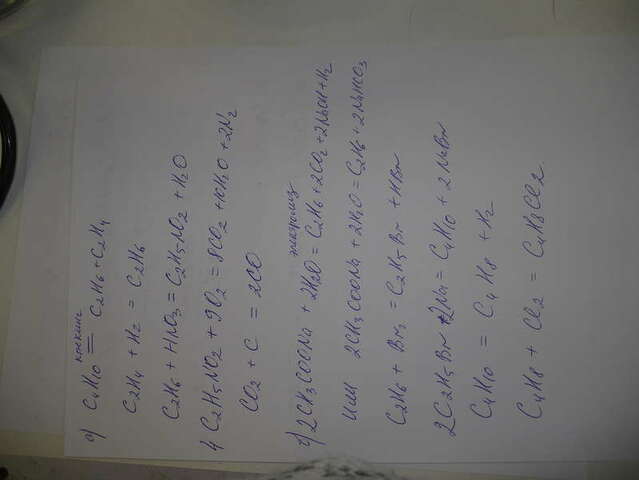 а) C4H10 крекинг = C2H6 + C2H4
C2H4 + H2 = C2H6
C2H6 + HNO3 = C2H5NO2 + H2O
4 C2H5NO2 + 9O2 = 8CO2 + 10H2O + 2N2
CO2 + C = 2CO
2CH3COONa + 2H2O электролиз = C2H6 + 2CO2 + 2NaOH + H2
или 2CH3COONa + 2H2O = C2H6 + 2NaHCO3
C2H6 + Br2 = C2H5Br + HBr
2C2H5Br + 2Na = C4H10 + 2NaBr
C4H10 = C4H8 + H2
C4H8 + Cl2 = C4H8Cl2.